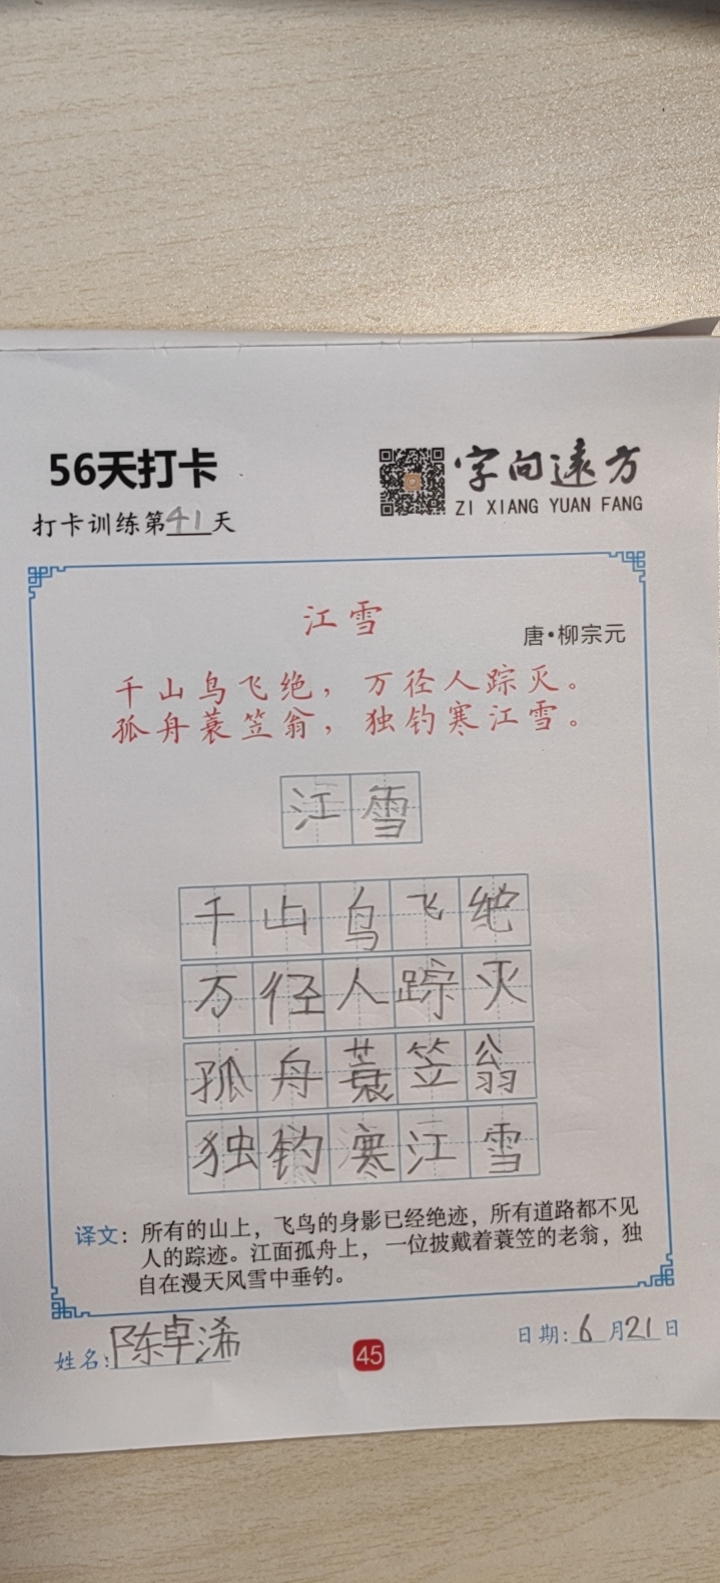 56天打卡
字向远方
ZI XIANG YUAN FANG
打卡训练第41天
江雪
唐·柳宗元
千山鸟飞绝，万径人踪灭。
孤舟蓑笠翁，独钓寒江雪。
江雪
千山鸟飞绝
万径人踪灭
孤舟蓑笠翁
独钓寒江雪
译文：所有的山上，飞鸟的身影已经绝迹，所有道路都不见
人的踪迹。江面孤舟上，一位披戴着蓑笠的老翁，独
自在漫天风雪中垂钓。
姓名：陈卓浠
45
日期：6月21日